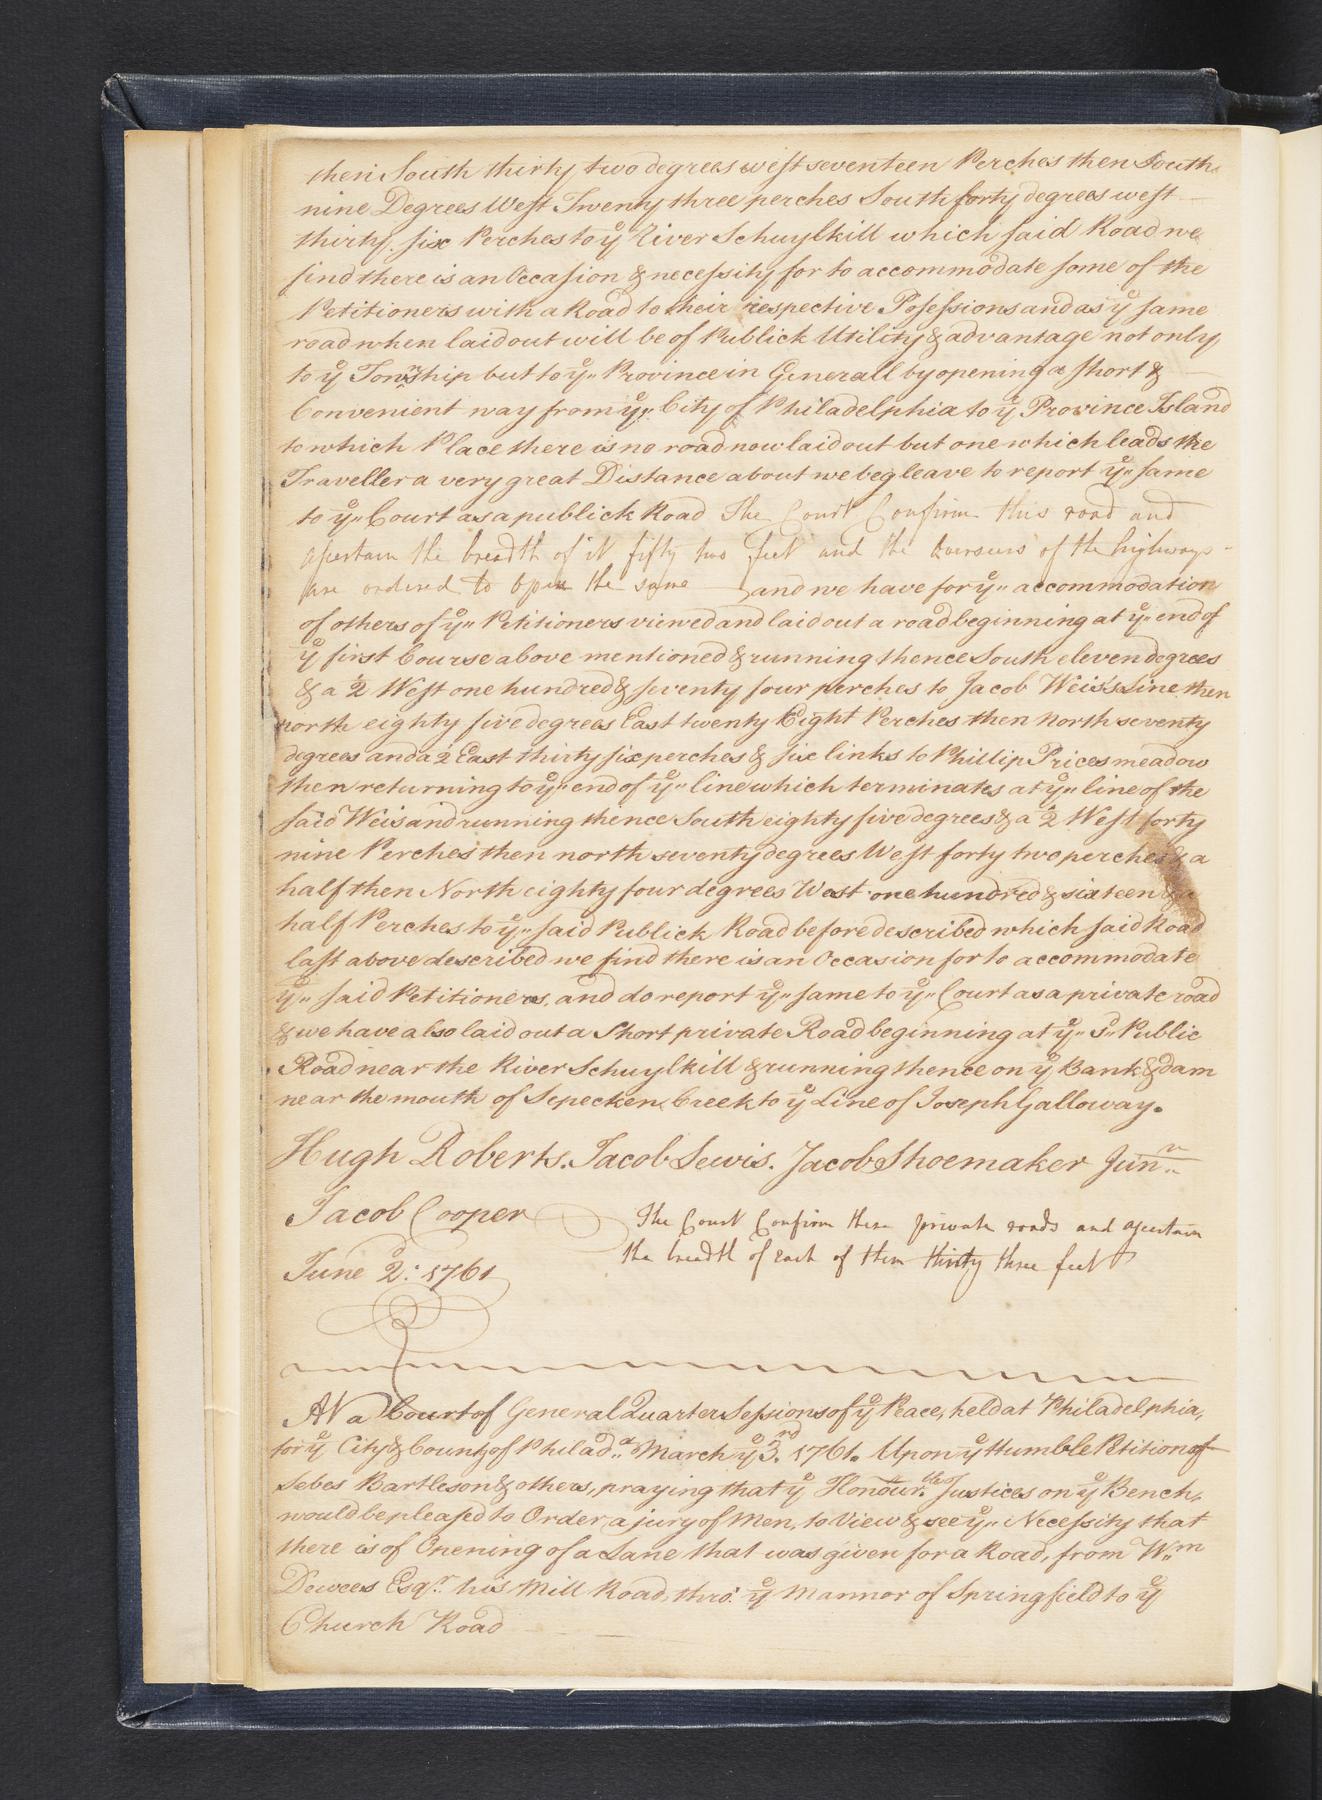 then South thirty two degrees west seventeen Perches then South
nine Degrees West Twenty three perches South forty degrees west
thirty six Perches to ye River Schuylkill which said Road we
find there is an Occasion & necessity for to accommodate some of the
Petitioners with a Road to their respective Posessions and as ye same
road when laid out will be of Publick Utility & advantage not only
to ye Township but to ye Province in Generall by opening a short &
Convenient way from ye City of Philadelphia to ye Province Island
to which Place there is no road now laid out but one which leads the
Traveller a very great Distance about we beg leave to report ye same
to ye Court as a publick Road The Court Confirm this road and
assertain the breadth of it fifty two feet and the Overseers of the highways
are ordered to open the same and we have for ye accommodation
of others of ye Petitioners viewed and laid out a road beginning at ye end of
ye first Course above mentioned & running thence South eleven degrees
& a ½ West one hundred & seventy four perches to Jacob Weiss's Line then
north eighty five degrees East twenty Eight Perches then north seventy
degrees and a ½ East thirty six perches & six links to Phillip Prices meadow
then returning to ye end of ye line which terminates at ye line of the
said Weis and running thence South eighty five degrees & a ½ West forty
nine Perches then north seventy degrees West forty two perches & a
half then North eighty four degrees West one hundred & sixteen & a
half Perches to ye said Publick Road before described which said Road
last above described we find there is an Occasion for to accommodate
ye said Petitioners, and do report ye same to ye Court as a private road
& we have also laid out a Short private Road beginning at ye sd Public
Road near the River Schuylkill & running thence on ye Bank & dam
near the mouth of Sepecken Creek to ye Line of Joseph Galloway.
Hugh Roberts. Jacob Lewis. Jacob Shoemaker Junr
Jacob Cooper
The Court Confirm these private roads and assertain
the breadth of each of them thirty three feet
June 2d: 1761
At a Court of General Quarter Sessions of ye Peace, held at Philadelphia,
for ye City & County of Philada March ye 3rd. 1761. Upon ye Humble Petition of
Sebes Bartleson & others, praying that ye Honourable Justices on ye Bench,
would be pleased to Order a jury of Men, to View & see ye Necessity that
there is of Opening of a Lane that was given for a Road, from Wm
Dewees Esqr his Mill Road, thro' ye Mannor of Springfield to ye
Church Road